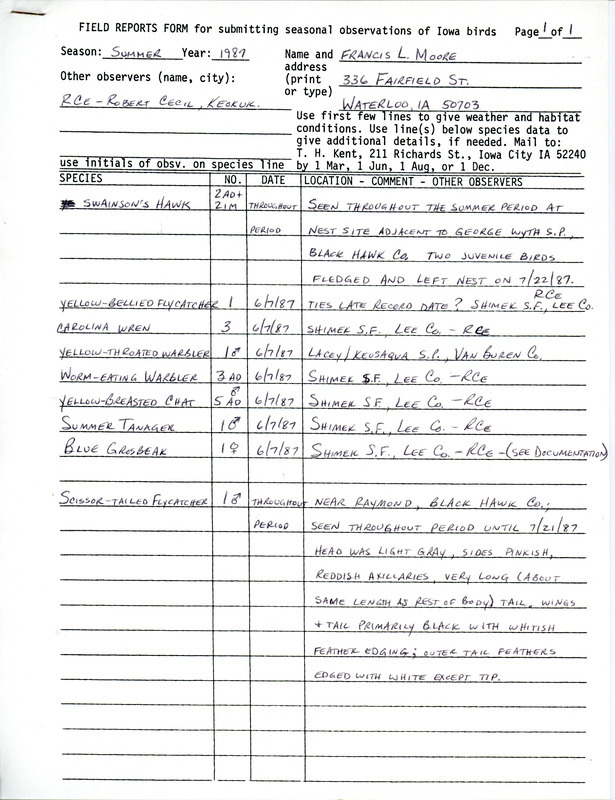 FIELD REPORTS FORM for submitting seasonal observations of Iowa birds Page 1 of 1
Season: SUMMER Year: 1987
Name and address (print or type) FRANCIS L. MOORE
336 FAIRFIELD ST.
WATERLOO, IA 50703
Other observers (name, city):
RCE - ROBERT CECIL, KEOKUK.
Use first few lines to give weather and habitat
conditions. Use line(s) below species data to
give additional details, if needed. Mail to:
T. H. Kent, 211 Richards St., Iowa City IA 52240
by 1 Mar, 1 Jun, 1 Aug, or 1 Dec.
use initials of obsv. on species line
SPECIES NO. DATE LOCATION - COMMENT - OTHER OBSERVERS
SWAINSON'S HAWK 2AD+ 2IM THROUGHOUT SEEN THROUGHOUT THE SUMMER PERIOD AT
PERIOD NEST SITE ADJACENT TO GEORGE WYTH S.P.,
BLACK HAWK CO. TWO JUVENILE BIRDS
FLEDGED AND LEFT NEST ON 7/22/87.
YELLOW-BELLIED FLYCATCHER 1 6/7/87 TIES LATE RECORD DATE? SHIMEK S.F., LEE CO. RCE
CAROLINA WREN 3 6/7/87 SHIMEK S.F., LEE CO. - RCE
YELLOW-THROATED WARBLER 1♂ 6/7/87 LACEY/KEOSAQUA S.P., VAN BUREN CO.
WORM-EATING WARBLER 3 AD 6/7/87 SHIMEK S.F., LEE CO. - RCE
YELLOW-BREASTED CHAT 5 AD ♂ 6/7/87 SHIMEK S.F., LEE CO. - RCE
SUMMER TANAGER 1♂ 6/7/87 SHIMEK S.F., LEE CO. - RCE
BLUE GROSBEAK 1♀ 6/7/87 SHIMEK S.F., LEE CO. - RCE - (SEE DOCUMENTATION)
SCISSOR-TAILED FLYCATCHER 1♂ THROUGHOUT NEAR RAYMOND, BLACK HAWK CO.;
PERIOD SEEN THROUGHOUT PERIOD UNTIL 7/21/87
HEAD WAS LIGHT GRAY, SIDES PINKISH,
REDDISH AXILLARIES, VERY LONG (ABOUT
SAME LENGTH AS REST OF BODY) TAIL. WINGS
+ TAIL PRIMARILY BLACK WITH WHITISH
FEATHER EDGING; OUTER TAIL FEATHERS
EDGED WITH WHITE EXCEPT TIP.